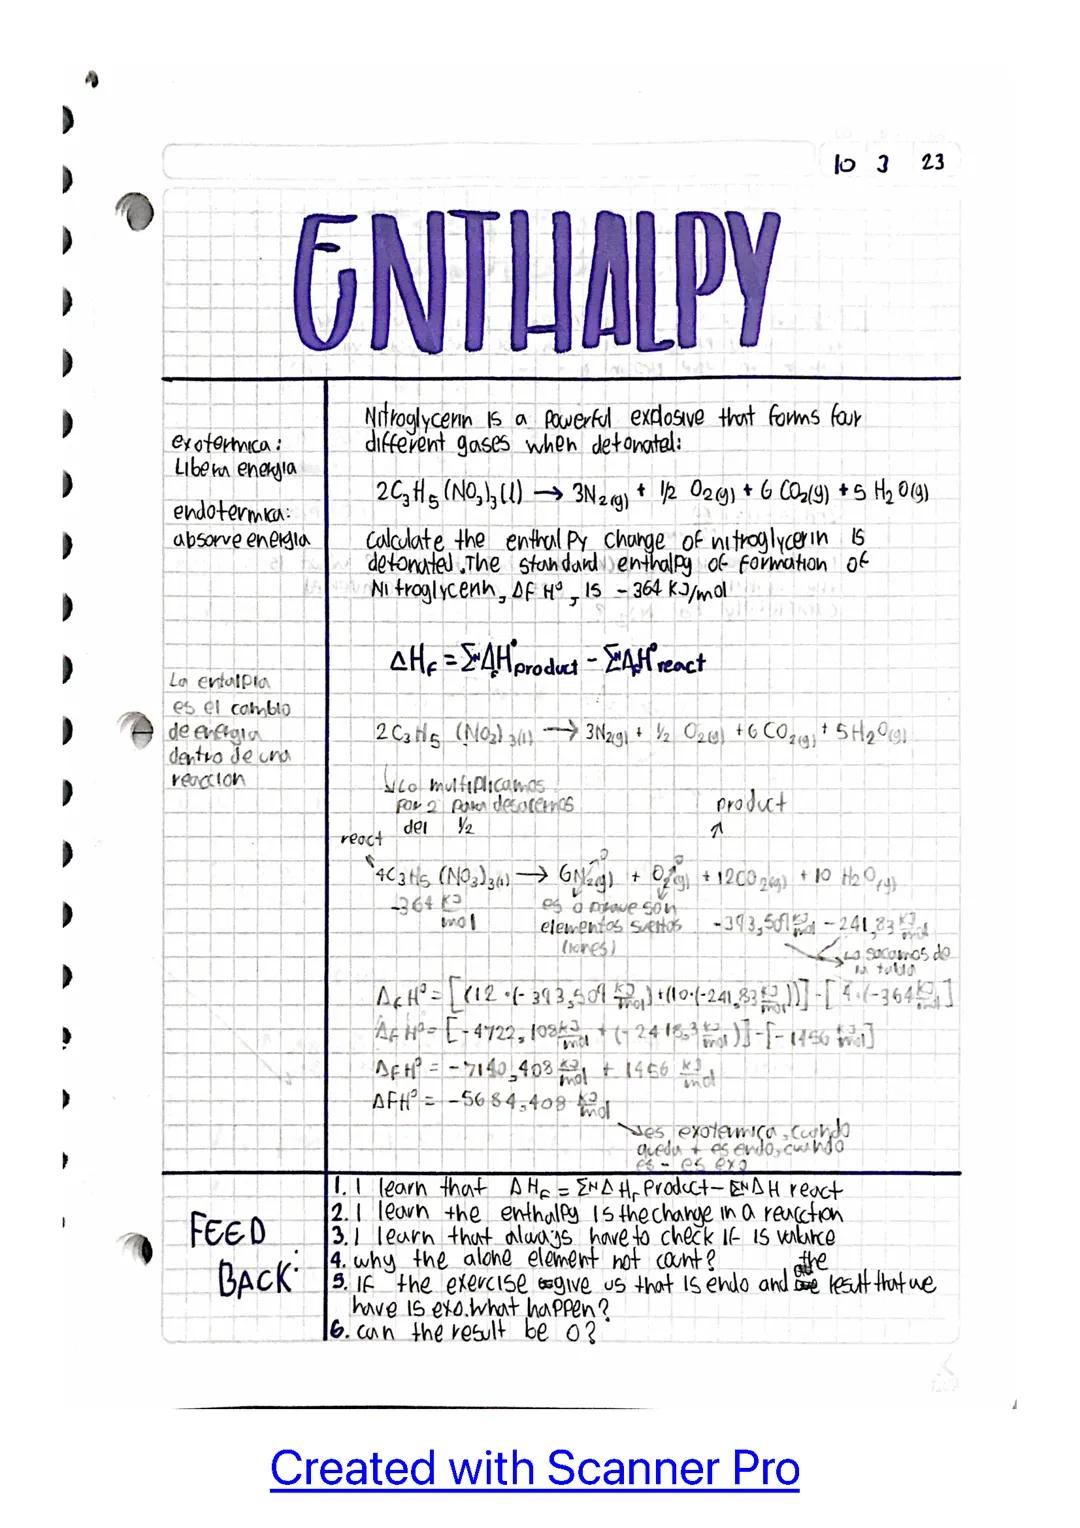 10 3 23
ENTHALPY
exotermica:
Libera energia
endotermica:
absorve energia
La entalpia
es el cambio
de energia
dentro de una
reaccion
Nitroglycerin is a powerful explosive that forms four
different gases when detonated:
2C₃H₅(NO₃)₃(l) → 3N₂(g) + 1/2 O₂(g) + 6 CO₂(g) + 5 H₂O(g)
Calculate the enthalpy change of nitroglycerin is
detonated. The standard enthalpy of formation of
Nitroglycerin, Δf H°, is -364 KJ/mol
ΔHf = ΣnΔfH°product - ΣnΔfH°react
2C₃H₅ (NO₃)₃(l) → 3N₂(g) + 1/2 O₂(g) + 6 CO₂(g) + 5H₂O(g)
Lo multiplicamos
por 2 para desacernos
del 1/2
product
react
4C₃H₅ (NO₃)₃(l) → 6N₂(g) + O₂(g) + 12CO₂(g) + 10 H₂O(g)
0 0
-364 KJ/mol
es 0 porque son
elementos sueltos
(iones)
-393,509 KJ/mol -241,83 KJ/mol
Lo sacamos de
la tabla
ΔfH° = [(12·(-393,509 KJ/mol)+(10·(-241,83 KJ/mol))]-[4·(-364 KJ/mol]
ΔfH° = [-4722,108 KJ/mol + (-2418,3 KJ/mol)]-[-1456 KJ/mol]
ΔfH° = -7140,408 KJ/mol + 1456 KJ/mol
ΔFH° = -5684,408 KJ/mol
es exotermica, cuando
queda + es endo, cuando
es - es exo
FEED
BACK:
1. I learn that ΔHf = ΣNΔHf Product - ΣNΔH react
2. I learn the enthalpy is the change in a reacction
3. I learn that always have to check if is valance
4. why the alone element not count?
5. IF the exercise give us that is endo and the result that we
have is exo. what happen?
6. can the result be 0?
Created with Scanner Pro